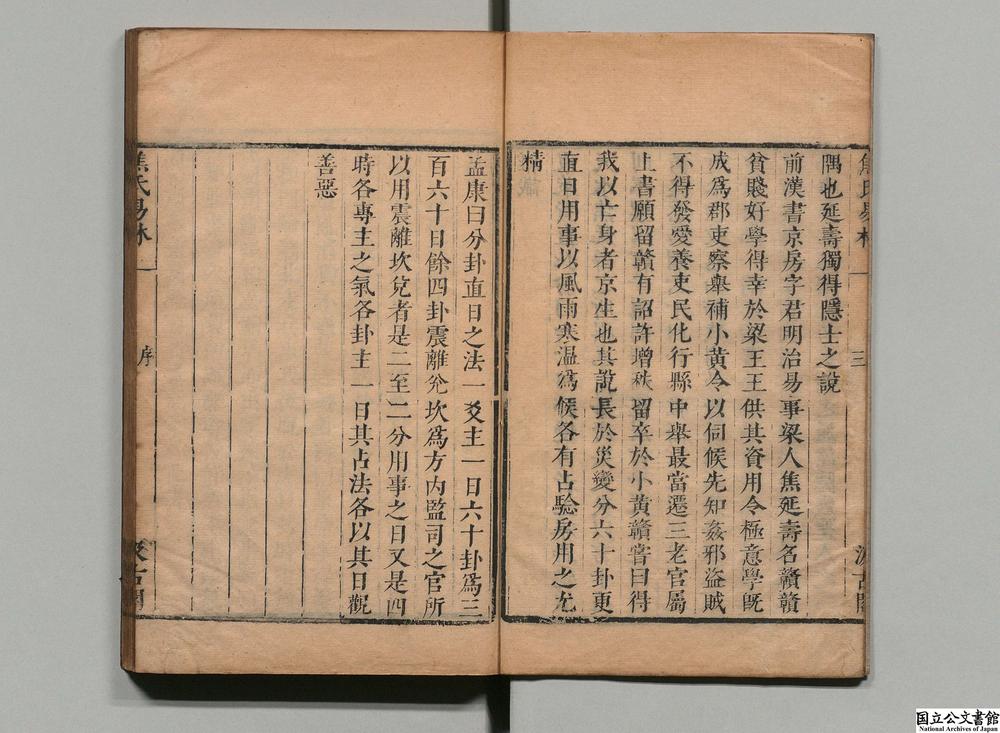 焦氏易林 一 三 汲古閣
隅也延壽獨得隱士之說
前漢書京房字君明治易事梁人焦延壽名贛贛
貧賤好學得幸於梁王王供其資用令極意學旣
成爲郡吏察舉補小黃令以伺候先知姦邪盜賊
不得發愛養吏民化行縣中舉最當遷三老官屬
上書願留贛有詔許增秩留卒於小黃贛嘗曰得
我以亡身者京生也其說長於災變分六十卦更
直日用事以風雨寒溫爲候各有占驗房用之尤
精
孟康曰分卦直日之法一爻主一日六十卦爲三
百六十日餘四卦震離兊坎爲方內監司之官所
以用震離坎兊者是二至二分用事之日又是四
時各專主之氣各卦主一日其占法各以其日觀
善惡
焦氏易林 一 序 汲古閣
国立公文書館
National Archives of Japan